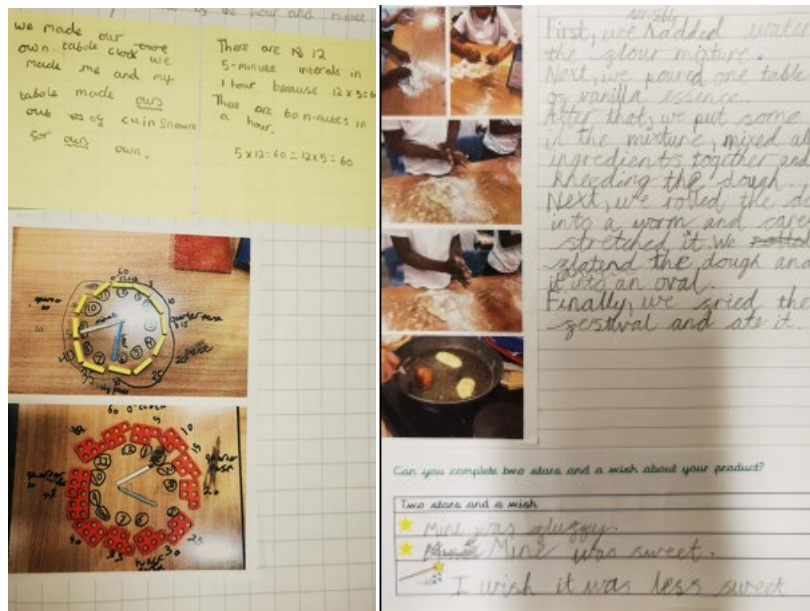 is the hour and minute
we made our
own tabole clock we
made me and my
tabole made ours
out of cuinsnawre
for ours own.
There are 12
5-minute intervals in
1 hour because 12x5=60
There are 60 minutes in
a hour.
5x12=60=12x5=60
60
quarter past
15
20
25
60 o'clock
5
10
15
20
25
30
35
40
First, we hadded water
the flour mixture.
Next, we poured one table
of vanilla essence.
After that, we put some
in the mixture, mixed all
ingredients together and
kneeding the dough.
Next, we rolled the d
into a worm and care
stretched it. We
flatend the dough and
it into an oval.
Finally, we fried the
festival and ate it.
Can you complete two stars and a wish about your product?
Two stars and a wish
Mine was fluffy.
Mine was sweet.
I wish it was less sweet